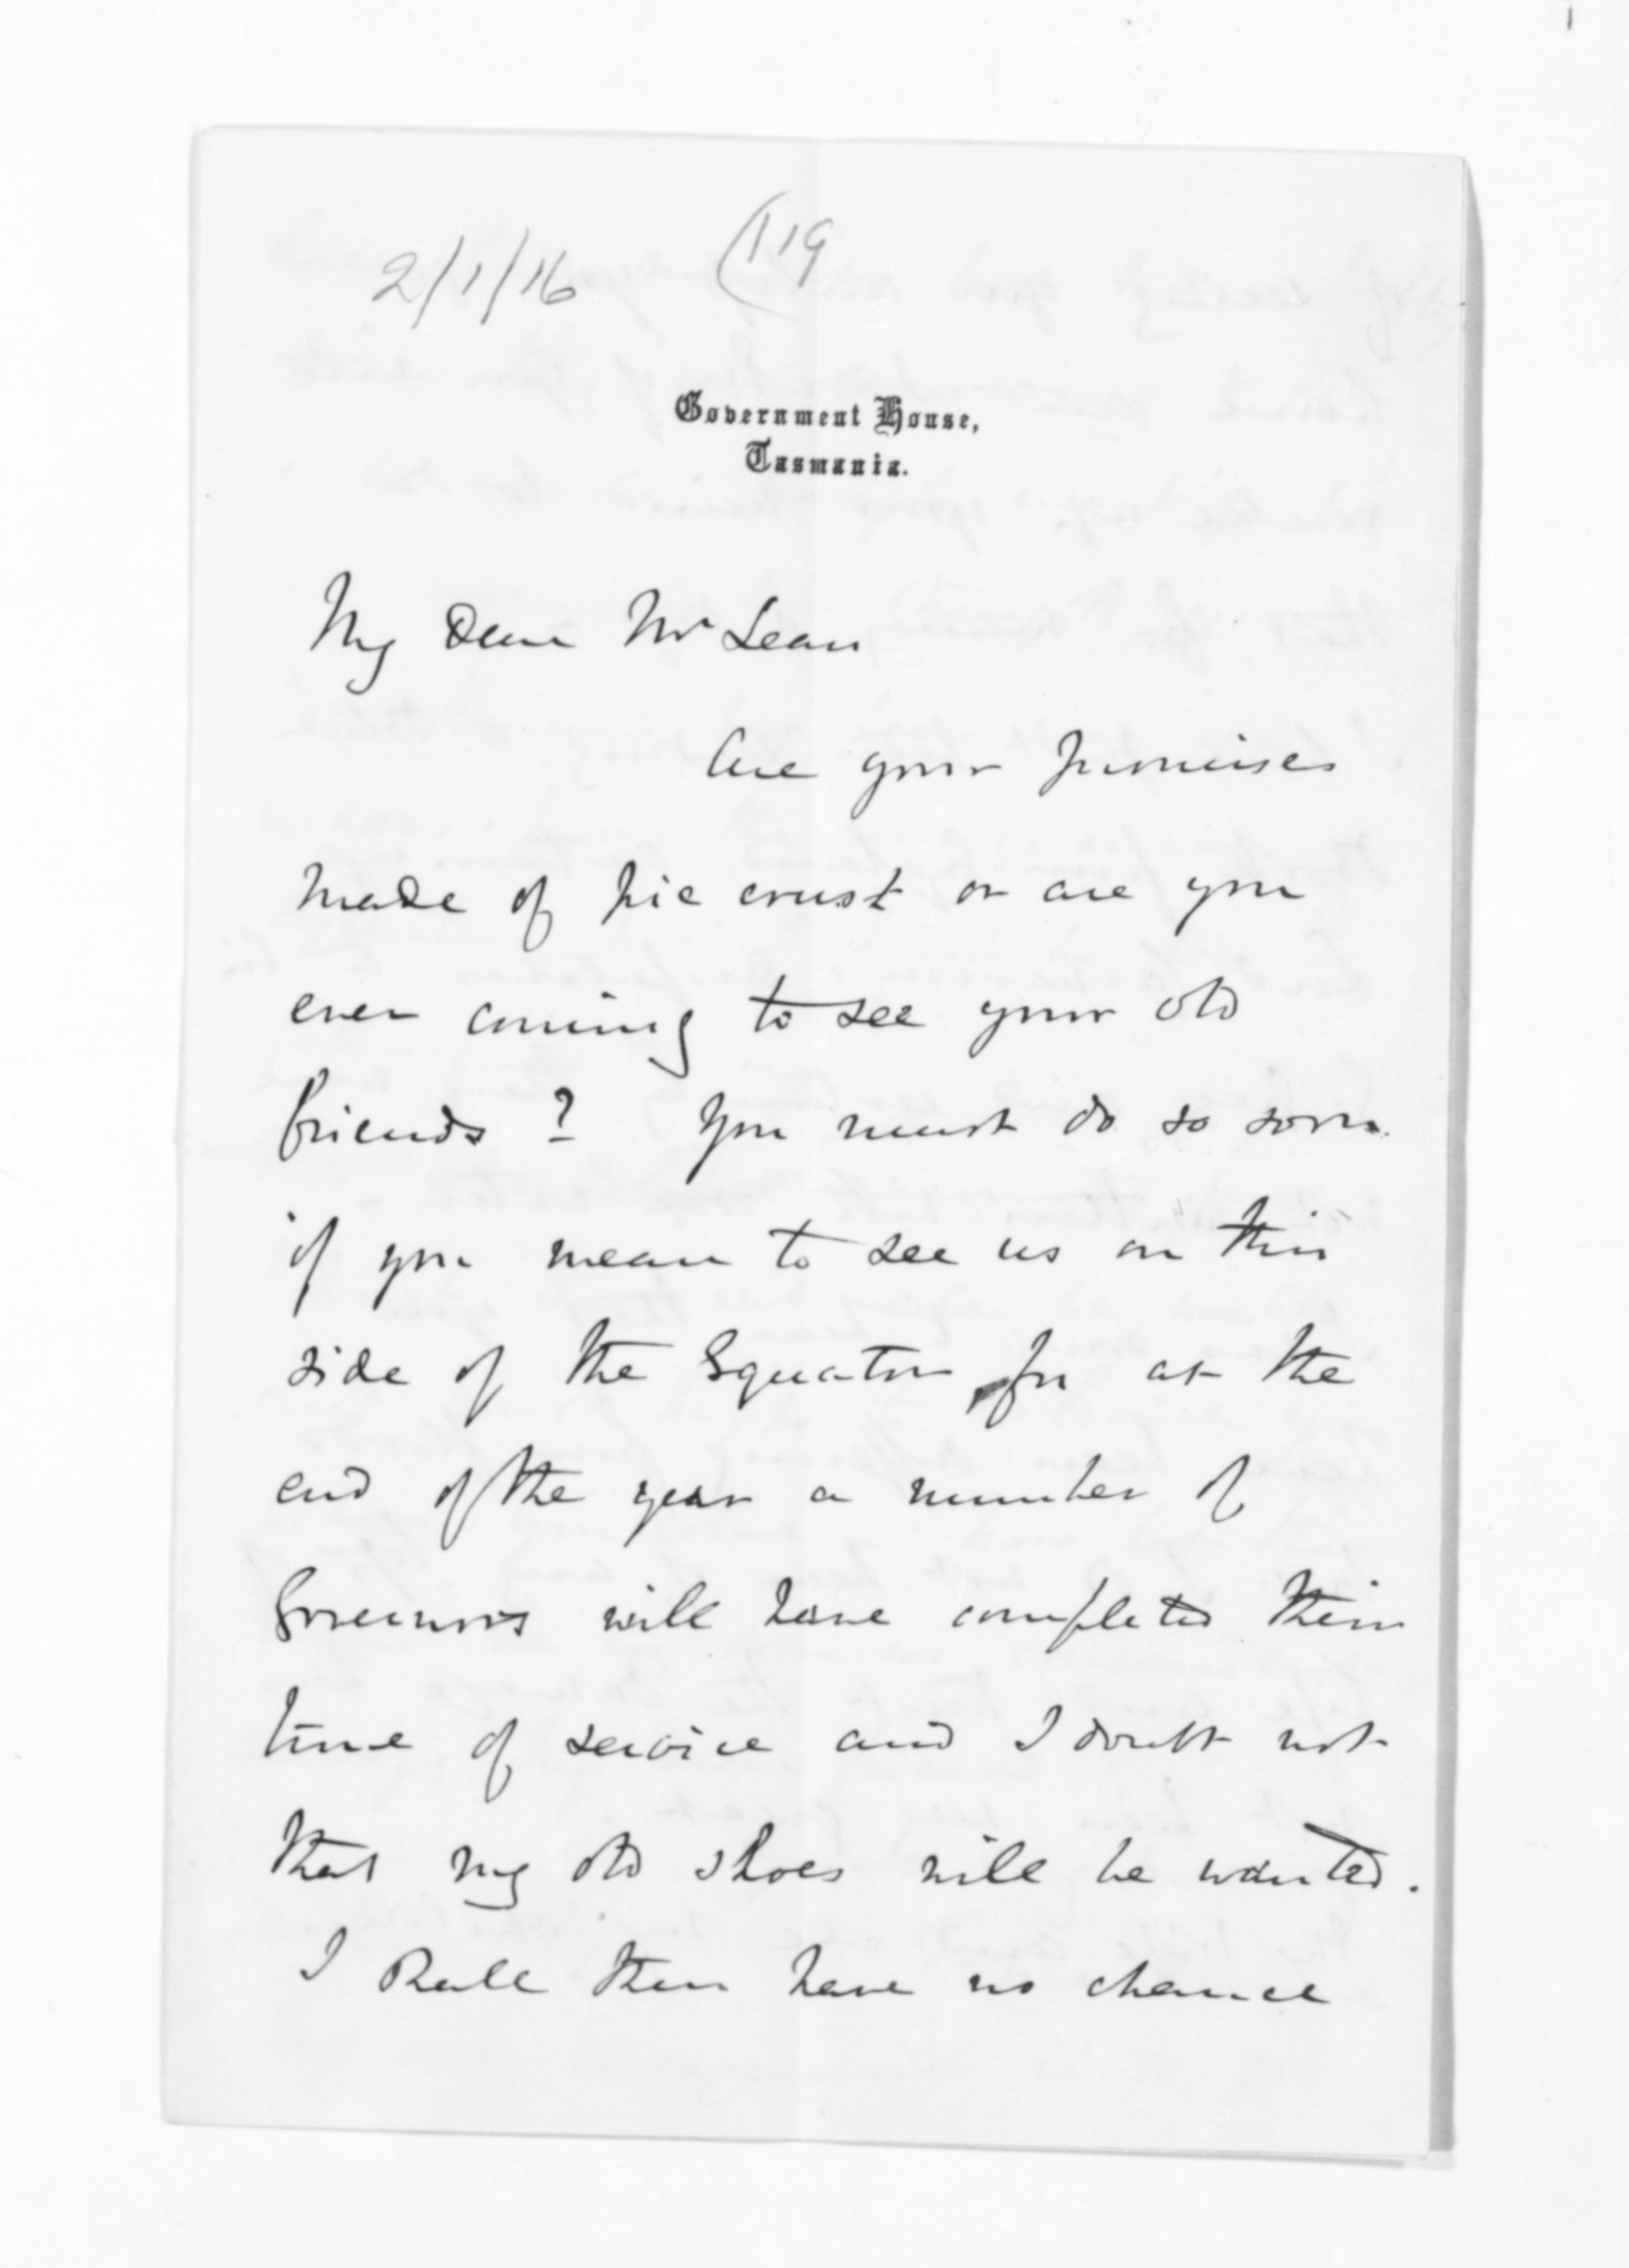 2/1/16
(119
Government House,
Tasmania.
My Dear Mr Lean
Are your promises
made of pie crust or are you
ever coming to see your old
friends ? You must do so soon
if you mean to see us on this
side of the Equator for at the
end of the year a number of
Governors will have completed their
time of service and I doubt not
that my old shoes will be wanted.
I shall then have no chance